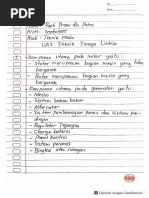 No.:
Date:
Nama : Rafi Pramudia Putra
Prodi : Teknik Mesin
UAS Teknik Tenaga Listrik
Komponen utama pada motor yaitu :
- Stator merupakan bagian mesin yang tidak bergerak
- Rotor merupakan bagian mesin yang bergerak
Komponen utama pada generator yaitu :
- Mesin
- Sistem bahan bakar
- Alternator
- Sistem pembuangan panas dan sistem pendingin
- Regulator Tegangan
- Charge baterai
- Panel kontrol
- Sistem pelumas
- Bingkai atau rangka
Dipindai dengan CamScanner